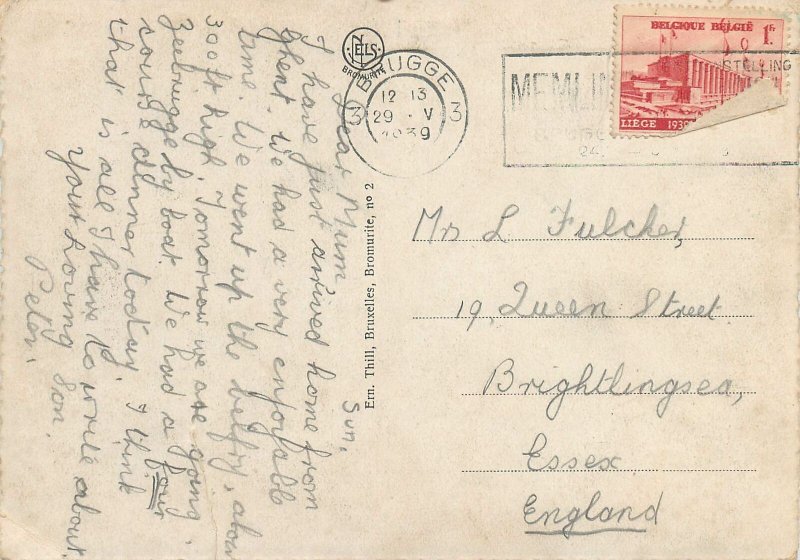 Sun.
Dear Mum
I have just arrived home from
Ghent. We had a very enjoyable
time We went up the belfry, about
300ft high. Tomorrow we are going
Zeebrugge by boat. We had a four
course dinner today. I think
that is all I have to write about.
Your Loving Son.
Peter.
NELS
BROMURITE
Ern. Thill, Bruxelles, Bromurite, no 2
3 BRUGGE 3
12-13
29 · V
1939
MEMLIN
STELLING
BELGIQUE BELGIË 1 Fr.
LIÈGE 1939
Mrs L Fulcher,
19, Queen Street
Brightlingsea,
Essex
England